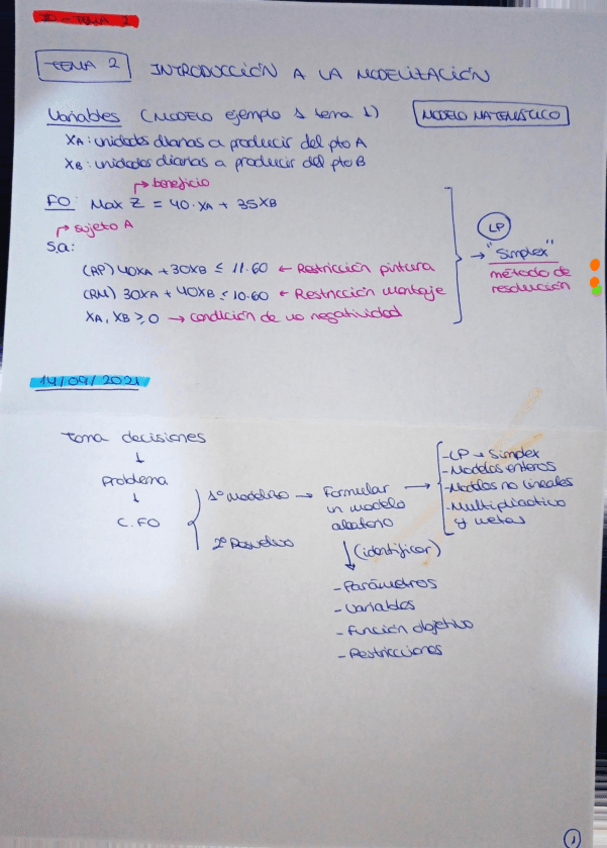 TEMA 2
TEMA 2 INTRODUCCIÓN A LA MODELIZACIÓN
Variables (MODELO ejemplo 1 tema 1) MODELO MATEMÁTICO
XA: unidades diarias a producir del pto A
XB: unidades diarias a producir del pto B
→ beneficio
FO: Max Z = 40·XA + 35XB
→ sujeto A
s.a:
LP
(RP) 40XA + 30XB ≤ 11·60 ← Restricción pintura
→ "Simplex"
(RM) 30XA + 40XB ≤ 10·60 ← Restricción montaje
método de
resolución
XA, XB ≥ 0 → condición de no negatividad
14/09/2021
Toma decisiones
↓
Problema
↓
C. FO
1º Modelizo → Formular
un modelo
2º Resuelvo
→
- LP → Simplex
- Modelos enteros
- Modelos no lineales
- Multiobjetivo
y metas
↓ (identificar)
- Parámetros
- Variables
- Función objetivo
- Restricciones
1